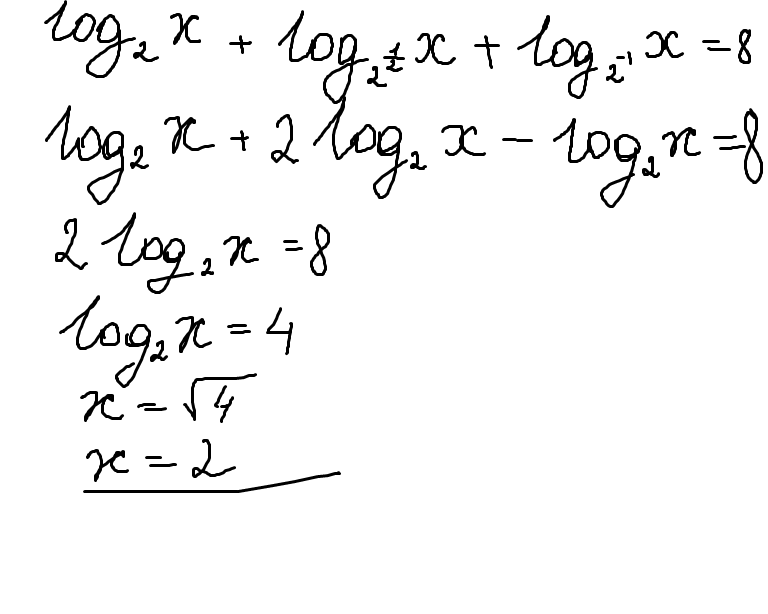 log₂ x + log_{2^{1/2}} x + log_{2^{-1}} x = 8
log₂ x + 2 log₂ x − log₂ x = 8
2 log₂ x = 8
log₂ x = 4
x = √4
x = 2